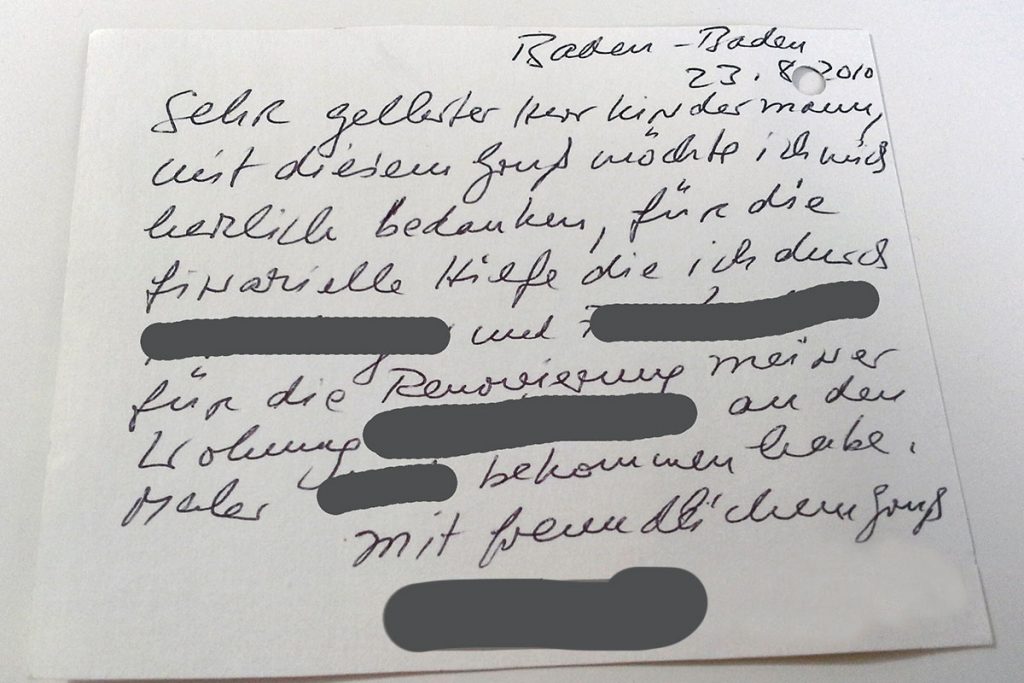 Baden-Baden
23.8.2010
Sehr geehrter Herr Kindermann,
mit diesem Gruß möchte ich mich
herzlich bedanken, für die
finanzielle Hilfe die ich durch
und
für die Renovierung meiner
Wohnung an den
Maler bekommen habe.
Mit freundlichem Gruß